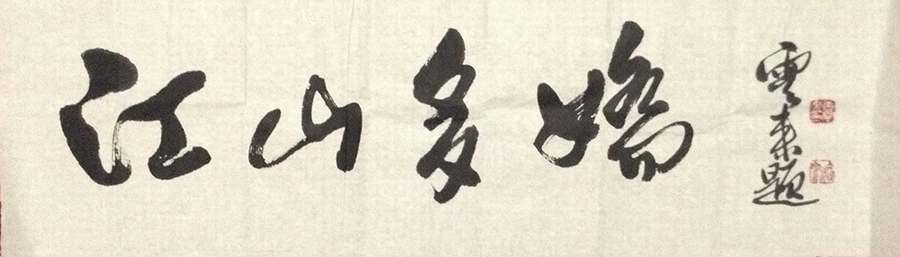 江山多嬌
雲来題